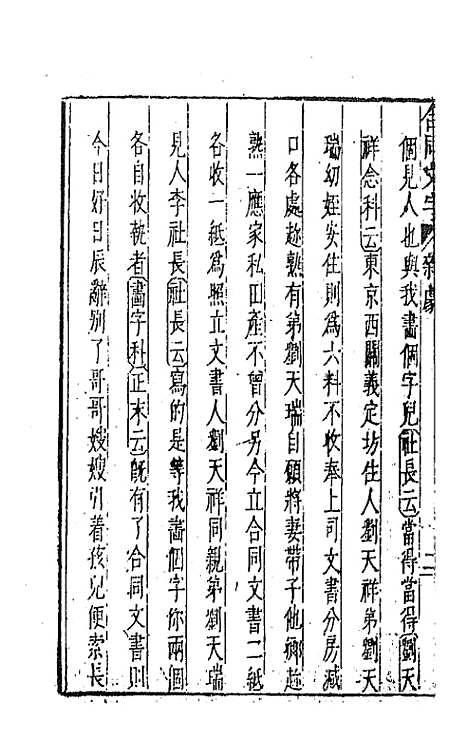 合同文字 雜劇
二
個見人也與我畫個字兒社長云當得當得劉天
祥念科云東京西關義定坊住人劉天祥弟劉天
瑞幼姪安住則為六料不收奉上司文書分房减
口各處趂熟有弟劉天瑞自願將妻帶子他鄉趂
熟一應家私田產不曾分另今立合同文書二紙
各收一紙為照立文書人劉天祥同親弟劉天瑞
見人李社長社長云寫的是等我畵個字你兩個
各自收執者畵字科正末云旣有了合同文書則
今日好日辰辭别了哥哥嫂嫂引着孩兒便索長